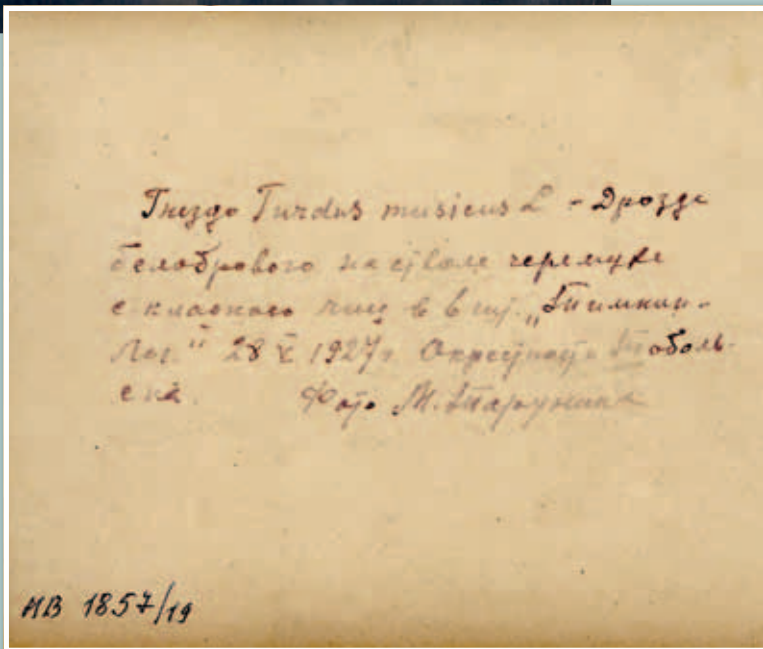 Гнездо Turdus musicus L - Дрозда
белобрового на стволе черемухи
с кладкой яиц в
Лог." 28 V 1927г. Окрестности Тоболь-
ска. Фото М. Тарунина
НВ 1857/19